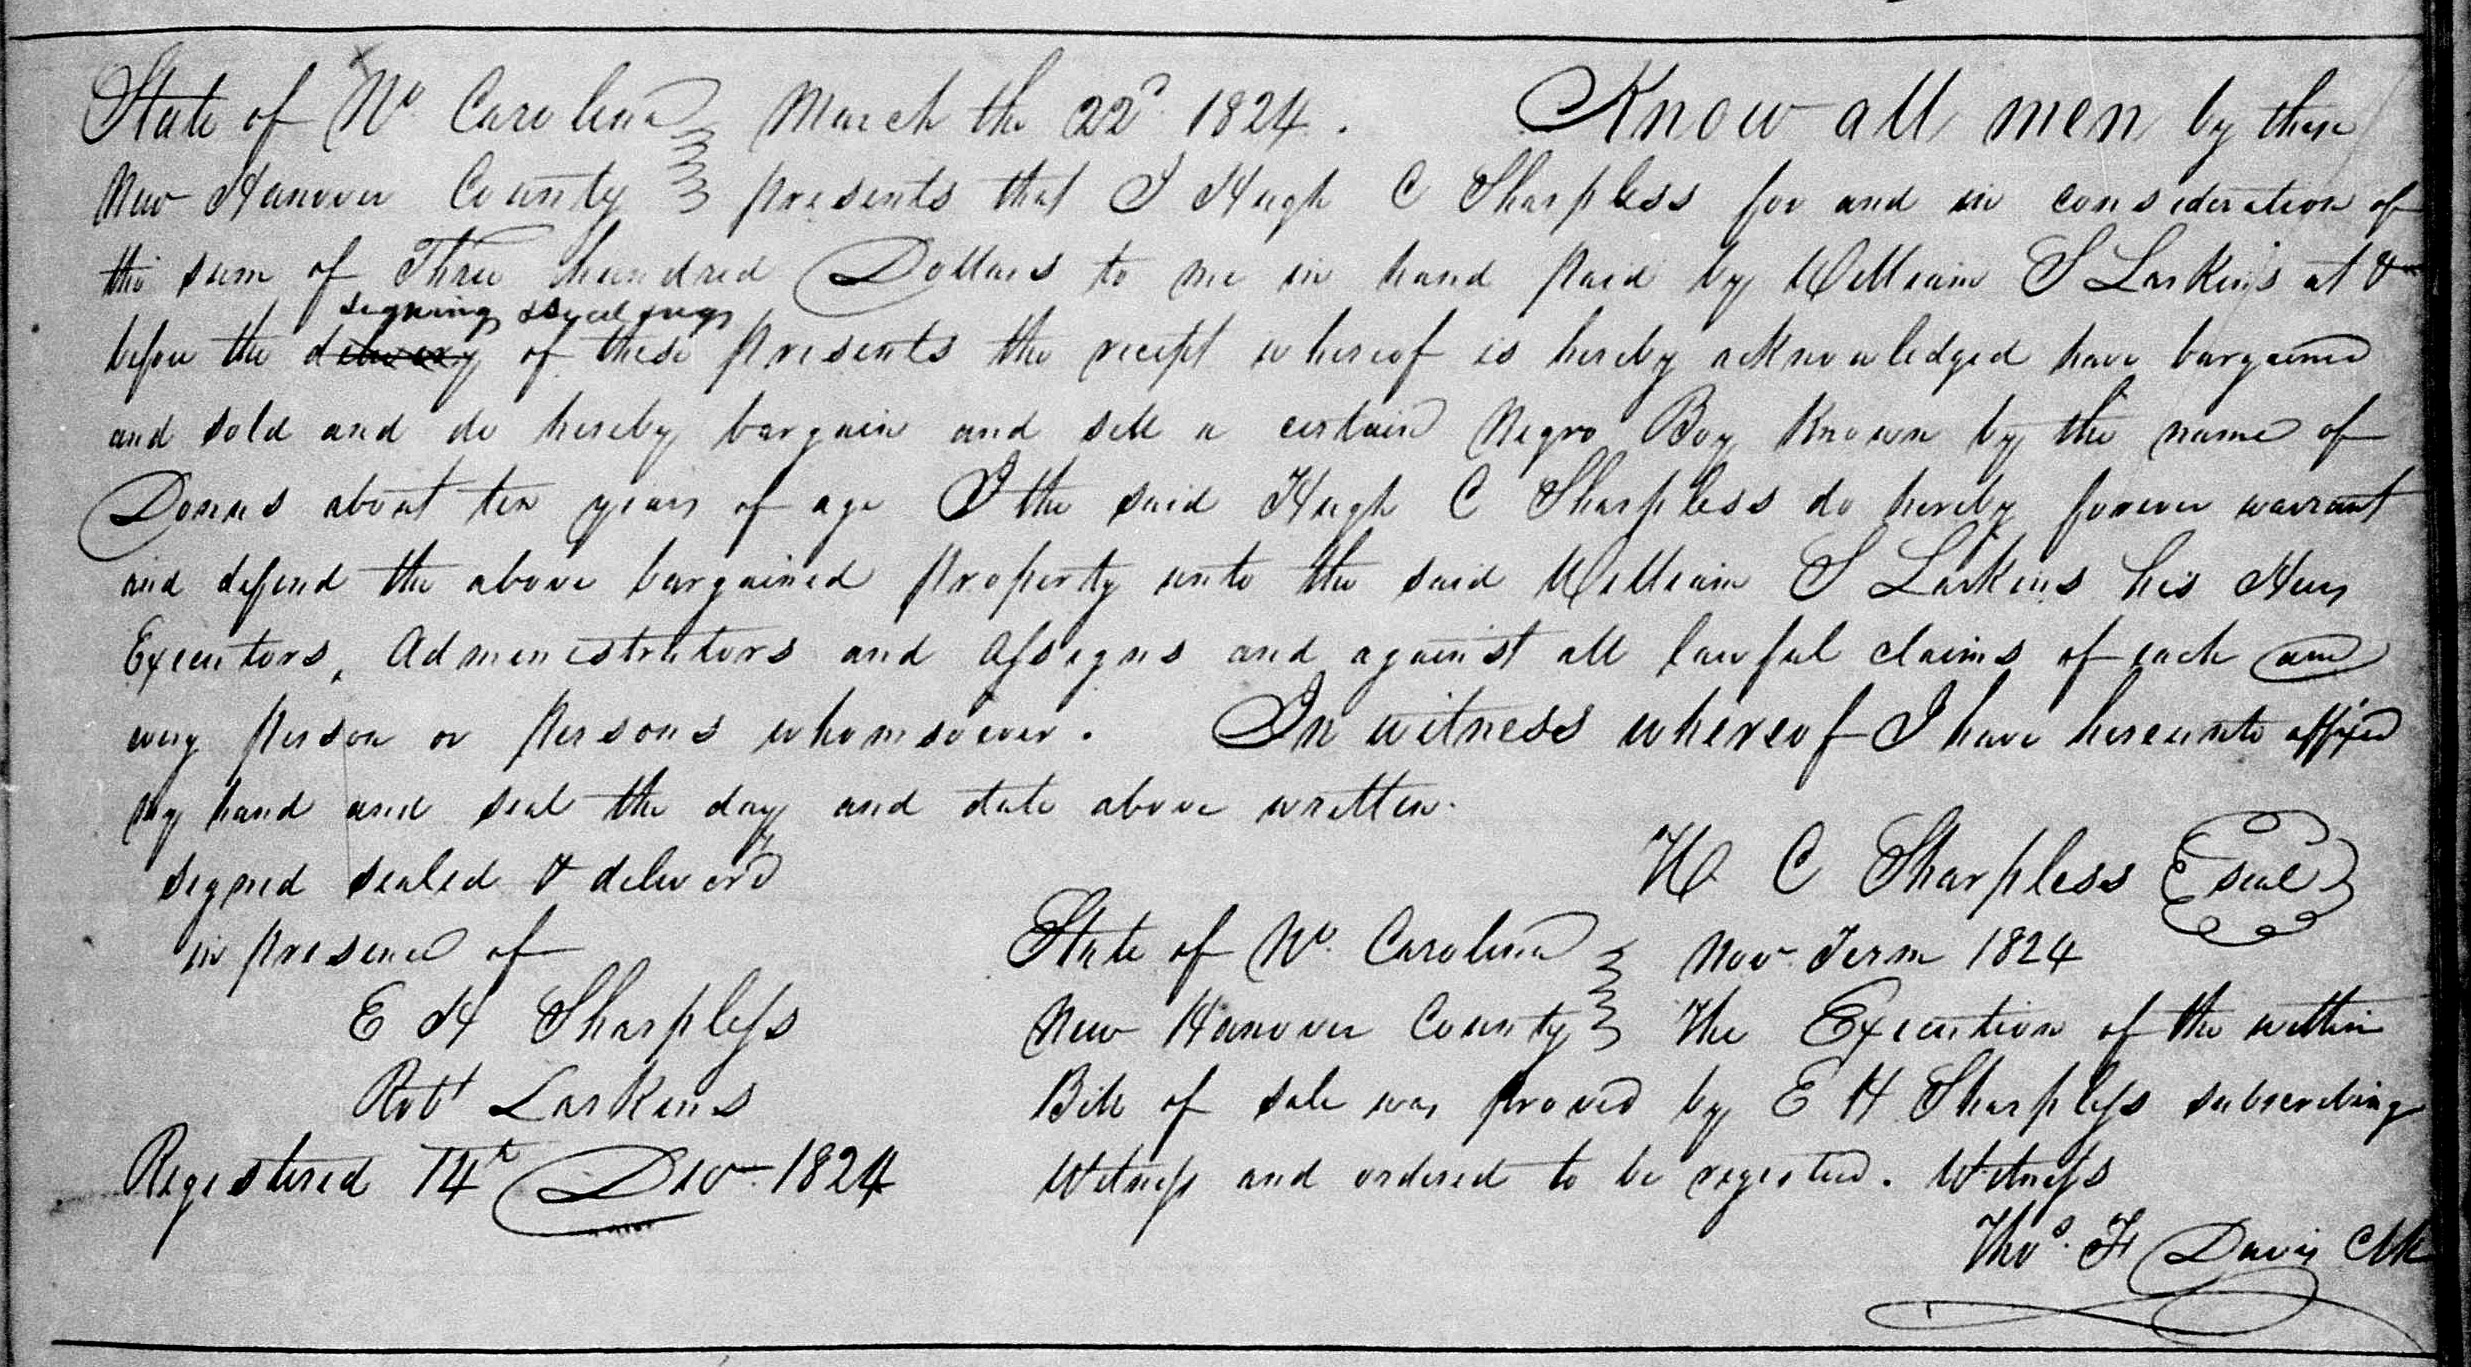 State of No. Carolina March the 22d. 1824. Know all men by these
New Hanover County presents that I Hugh C Sharpless for and in consideration of
the sum of Three hundred Dollars to me in hand paid by William S Larkins at &
signing sealing
before the delivery of these presents the receipt whereof is hereby acknowledged have bargained
and sold and do hereby bargain and sell a certain Negro Boy Known by the name of
about ten years of age I the said Hugh C Sharpless do hereby forever warrant
and defend the above bargained property unto the said William S Larkins his Heirs
Executors, Administrators and Assigns and against all lawful claims of each and
every person or persons whomsoever. In witness whereof I have hereunto affixed
my hand and seal the day and date above written.
H C Sharpless seal
signed sealed & deliverd
in presence of
E H Sharpless
Robt Larkins
Registered 14t Decr 1824
State of No. Carolina Nov. Term 1824
New Hanover County The Execution of the within
Bill of sale was proved by E H Sharpless subscribing
Witness and ordered to be registerd. Witness
Thos. F Davis Clk